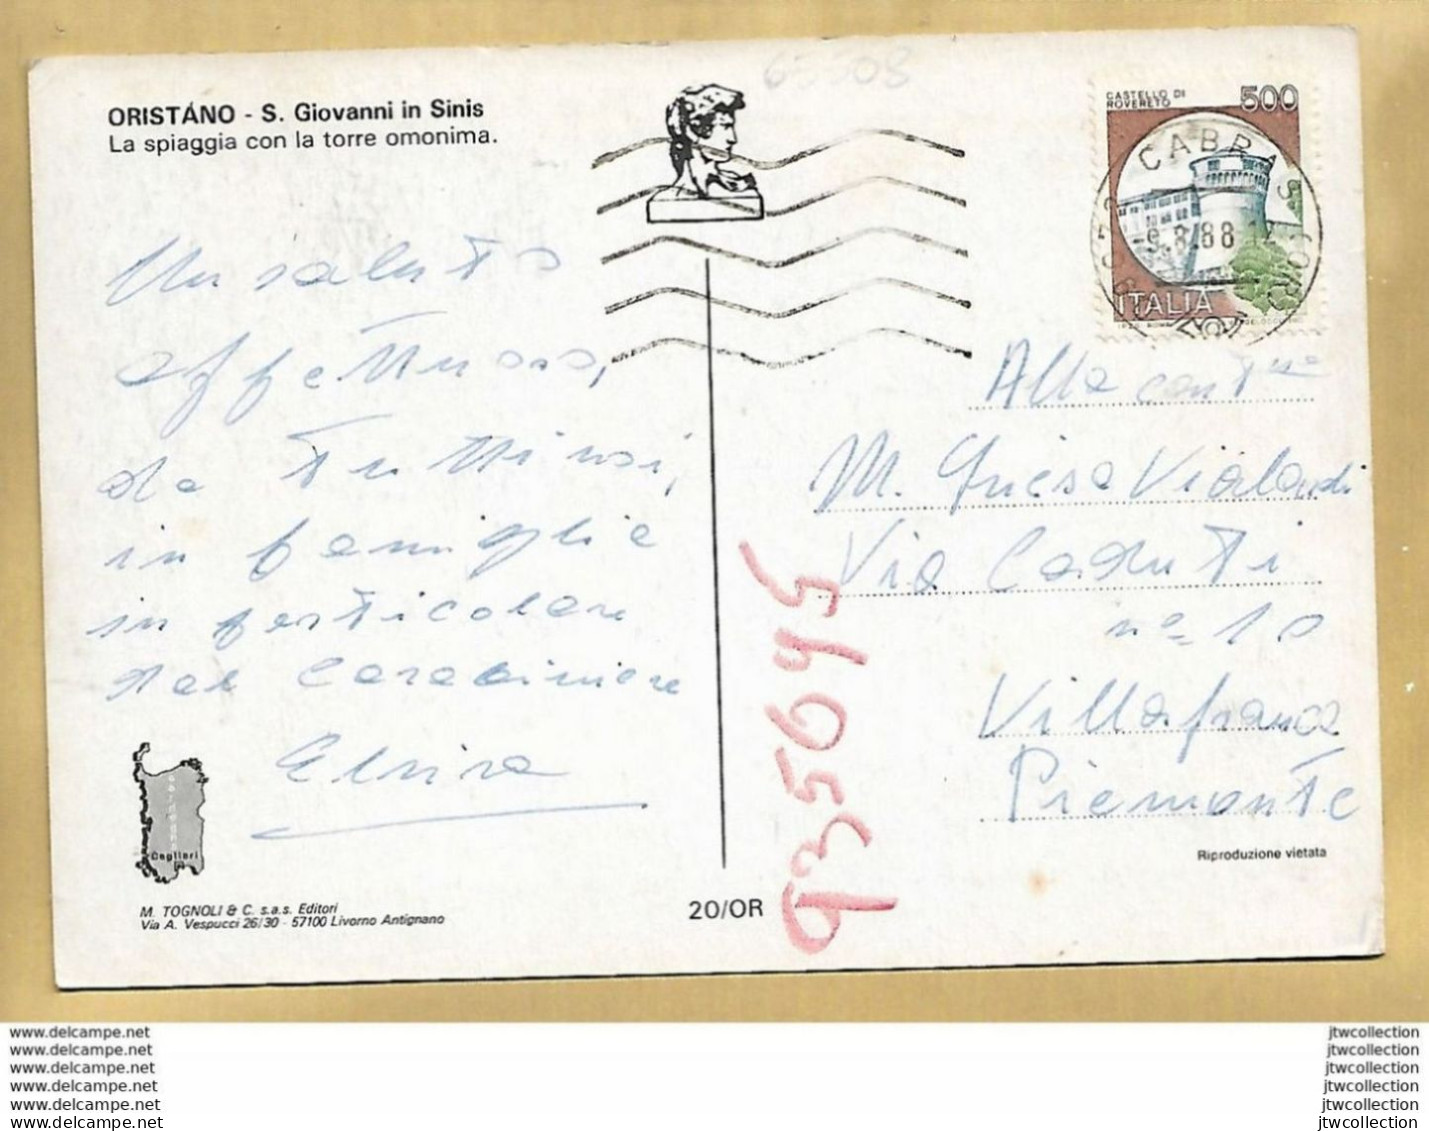 65508
ORISTANO - S. Giovanni in Sinis
La spiaggia con la torre omonima.
CASTELLO DI
ROVERETO
500
CABRAS
-9.8.88
ITALIA
Un saluto
affettuoso,
da tutti noi,
in famiglia
in particolare
dal Carabiniere
Elvira
Alla
M. Vialardi
Via Caduti
nº 10
Villafranca
Piemonte
935645
Cagliari
Riproduzione vietata
M. TOGNOLI & C. s.a.s. Editori
Via A. Vespucci 26/30 - 57100 Livorno Antignano
20/OR
www.delcampe.net
www.delcampe.net
www.delcampe.net
www.delcampe.net
www.delcampe.net
www.delcampe.net
jtwcollection
jtwcollection
jtwcollection
jtwcollection
jtwcollection
jtwcollection